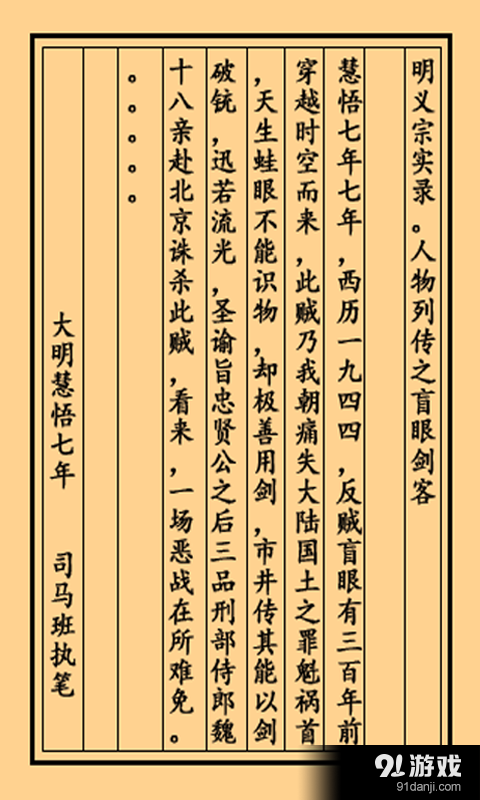 明义宗实录。人物列传之盲眼剑客
慧悟七年七年，西历一九四四，反贼盲眼有三百年前
穿越时空而来，此贼乃我朝痛失大陆国土之罪魁祸首
，天生蛙眼不能识物，却极善用剑，市井传其能以剑
破铳，迅若流光，圣谕旨忠贤公之后三品刑部侍郎魏
十八亲赴北京诛杀此贼，看来，一场恶战在所难免。
。。。。。
大明慧悟七年 司马班执笔
91游戏
91danji.com